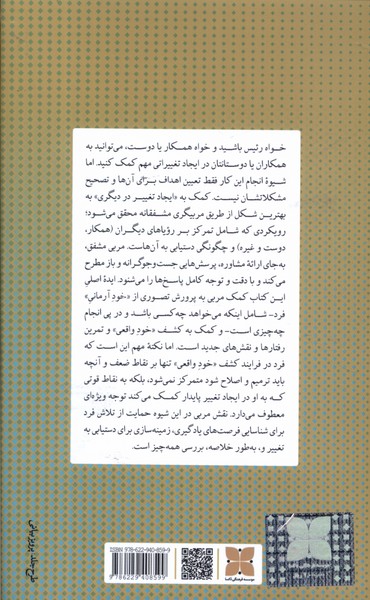 خواه رئیس باشید و خواه همکار یا دوست، می‌توانید به
همکاران یا دوستانتان در ایجاد تغییراتی مهم کمک کنید. اما
شیوهٔ انجام این کار فقط تعیین اهداف برای آن‌ها و تصحیح
مشکلاتشان نیست. کمک به «ایجاد تغییر در دیگری» به
بهترین شکل از طریق مربیگری مشفقانه محقق می‌شود؛
رویکردی که شامل تمرکز بر رؤیاهای دیگران (همکار،
دوست و غیره) و چگونگی دستیابی به آن‌هاست. مربی مشفق،
به‌جای ارائهٔ مشاوره، پرسش‌هایی جست‌وجوگرانه و باز مطرح
می‌کند و با دقت و توجه کامل پاسخ‌ها را می‌شنود. ایدهٔ اصلی
این کتاب کمک مربی به پرورش تصوری از «خودِ آرمانیِ»
فرد- شامل اینکه می‌خواهد چه‌کسی باشد و در پی انجام
چه‌چیزی است- و کمک به کشف «خودِ واقعی» و تمرین
رفتارها و نقش‌های جدید است. اما نکتهٔ مهم این است که
فرد در فرایند کشف «خودِ واقعی» تنها بر نقاط ضعف و آنچه
باید ترمیم و اصلاح شود متمرکز نمی‌شود، بلکه به نقاط قوتی
که به او در ایجاد تغییر پایدار کمک می‌کند توجه ویژه‌ای
معطوف می‌دارد. نقش مربی در این شیوه حمایت از تلاش فرد
برای شناسایی فرصت‌های یادگیری، زمینه‌سازی برای دستیابی به
تغییر و، به‌طور خلاصه، بررسی همه‌چیز است.
طرح جلد: پرویز بیانی
ISBN: 978-622-940-859-9
9786229408599